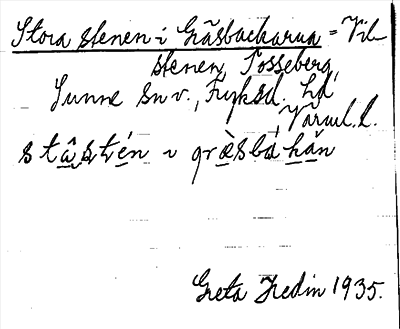 Stora stenen i Gåsbackarna = Vil-
stenen, Tosseberg,
Sunne sn v., Fryksd. hd,
Värml. l.
stâstén i græsbáhăn
Greta Hedin 1935.